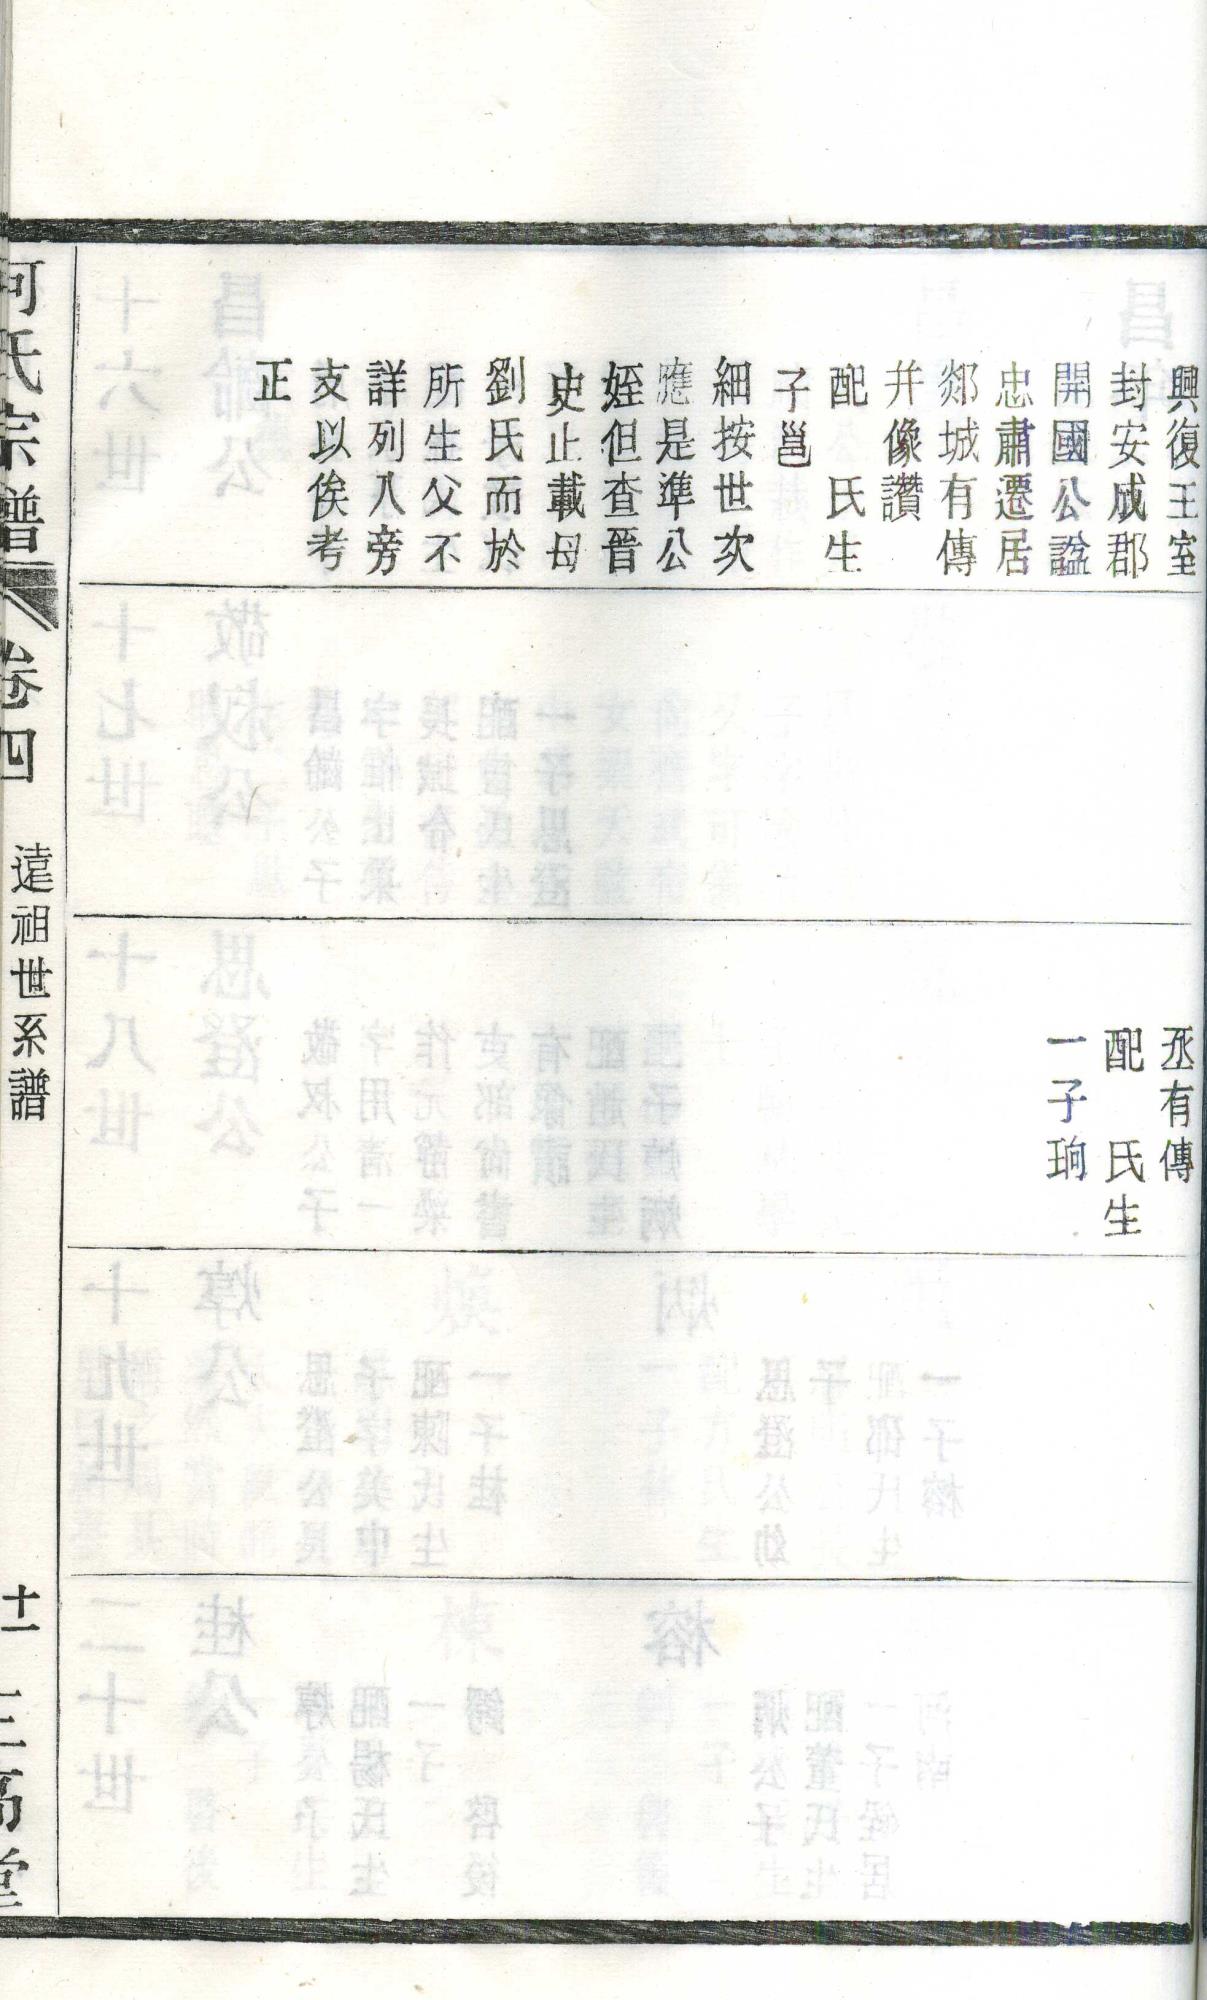 興復王室
封安成郡
開國公謚
忠肅遷居
郯城有傳
并像讚
配　氏生
子邕
細按世次
應是準公
姪但查晉
史止載母
劉氏而於
所生父不
詳列入旁
支以俟考
正
丞有傳
配　氏生
一子珣
何氏宗譜
卷四
遠祖世系譜
十一
三高堂